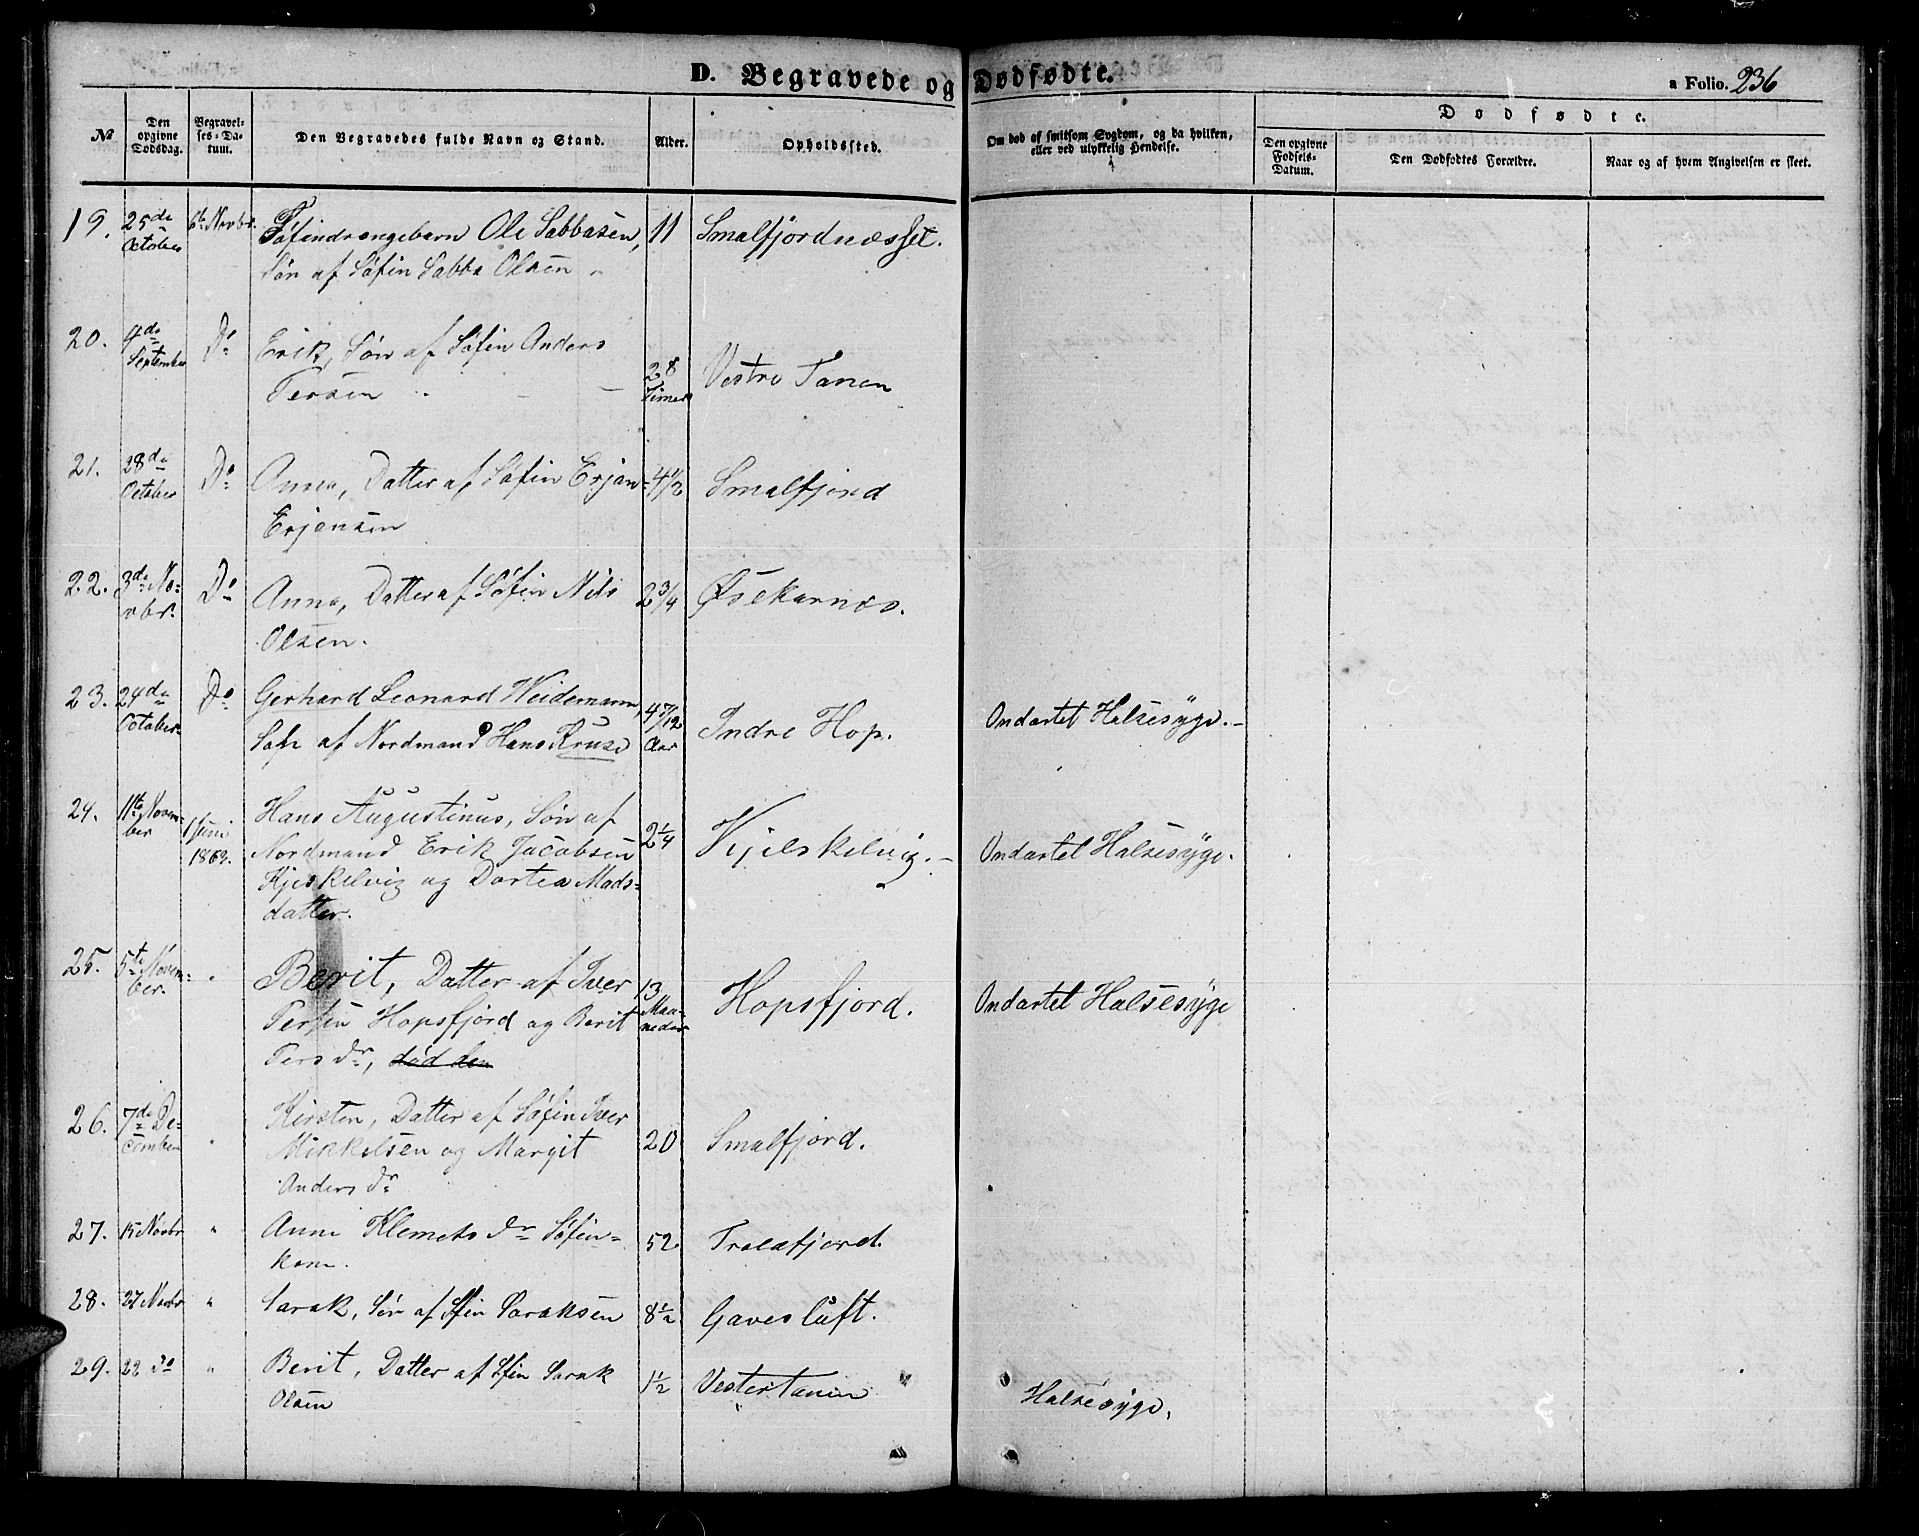 D. Begravede og Dødfødte.
a Folio. 236
No
Den opgivne Dødsdag.
Begravelses-Datum.
Den Begravedes fulde Navn og Stand.
Alder.
Opholdssted.
Om død af smitsom Sygdom, og da hvilken, eller ved ulykkelig Hendelse.
Dødfødte.
Den opgivne Fødsels-Datum.
Den Dødfødtes Forældre.
Naar og af hvem Angivelsen er skeet.
19. 25de October 6te Novbr. Søfindrengebarn Ole Sabbasen, 11 Smalfjordnæsset.
Søn af Søfin Sabba Olsen
20. 4de September Do Erik, Søn af Søfin Anders 28 Timer Vestre Tanen
Persen
21. 28de October Do Anna, Datter af Søfin Erjan 4 1/2 Smalfjord
Erjansen
22. 3de Novbr. Do Anna, Datter af Søfin Nils 2 3/4 Øsekarnes.
Olsen.
23. 24de October Do Gerhard Leonard Weidemann, 4 7/12 Aar Indre Hop. Ondartet Halsesyge.-
Søn af Nordmand Hans Kruse
24. 11te November 1 Juni 1863. Hans Augustinus, Søn af 2 1/4 Kjelskelvig.- Ondartet Halsesyge.
Nordmand Erik Jacobsen
Kjeskelvig og Dortea Mads-
datter.
25. 5te November. " Berit, Datter af Iver 13 Maaneder Hopsfjord. Ondartet Halsesyge
Persen Hopsfjord og Berit
Persdr, død den
26. 7de December " Kirsten, Datter af Søfin Iver 20 Smalfjord.
Mikkelsen og Margit
Andersdr
27. 15 Novbr " Anne Klemetsdr Søfin- 52 Trolfjord.
kone.
28. 27 Novbr " Sarak, Søn af Sfin Saraksen 8 1/2 Gavesluft.
29. 22 Do " Berit, Datter af Sfin Sarak 1 1/2 Vestertanen Halsesyge.
Olsen